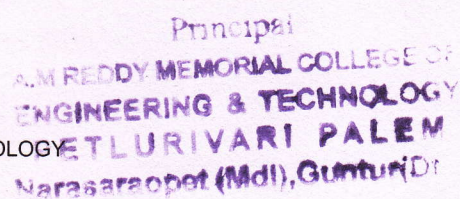 Principal
A.M REDDY MEMORIAL COLLEGE OF
ENGINEERING & TECHNOLOGY
OLOGY PETLURIVARI PALEM
Narasaraopet (Mdl), Guntur Dt